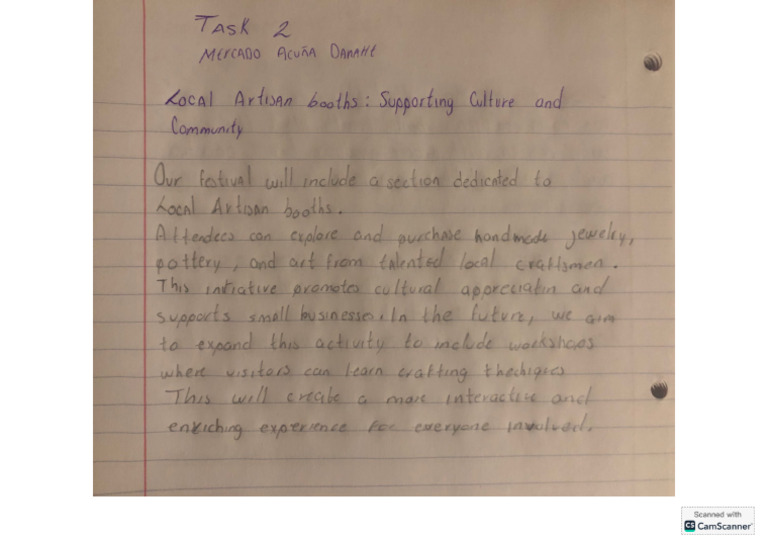 TASK 2
MERCADO ACUÑA DANAHE
Local Artisan booths: Supporting Culture and
Community
Our festival will include a section dedicated to
Local Artisan booths.
Attendees can explore and purchase handmade jewelry,
pottery, and art from talented local craftsmen.
This initiative promotes cultural appreciatin and
supports small businesses. In the future, we aim
to expand this activity to include workshops
where visitors can learn crafting thechiques
This will create a more interactive and
enriching experience for everyone involved.
Scanned with
CS CamScanner